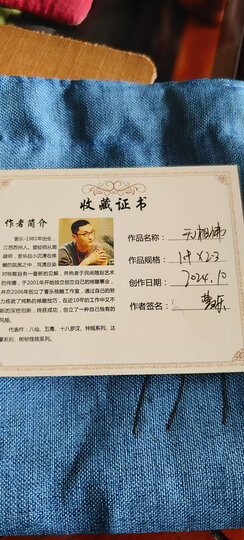 收藏证书
作者简介
曹乐-1981年出生，
江苏苏州人。曾经师从周
建明，曹乐自小沉浸在核
雕的氛围之中，耳濡目染
对核雕自有一番新的见解，并热衷于民间雕刻艺术
的传播；于2001年开始独立创立自己的核雕事业，
并在2006年创立了曹乐核雕工作室，通过自己的努
力练就了纯熟的核雕技巧，在近10年的工作中又不
断的深挖创新，终获成功，创立了一种自己独有的
风格。
代表作：八仙、五毒、十八罗汉、钟馗系列、达
摩系列、树桩怪核系列。
作品名称：
作品规格：19X23
创作日期：2024.10
作者签名：曹乐